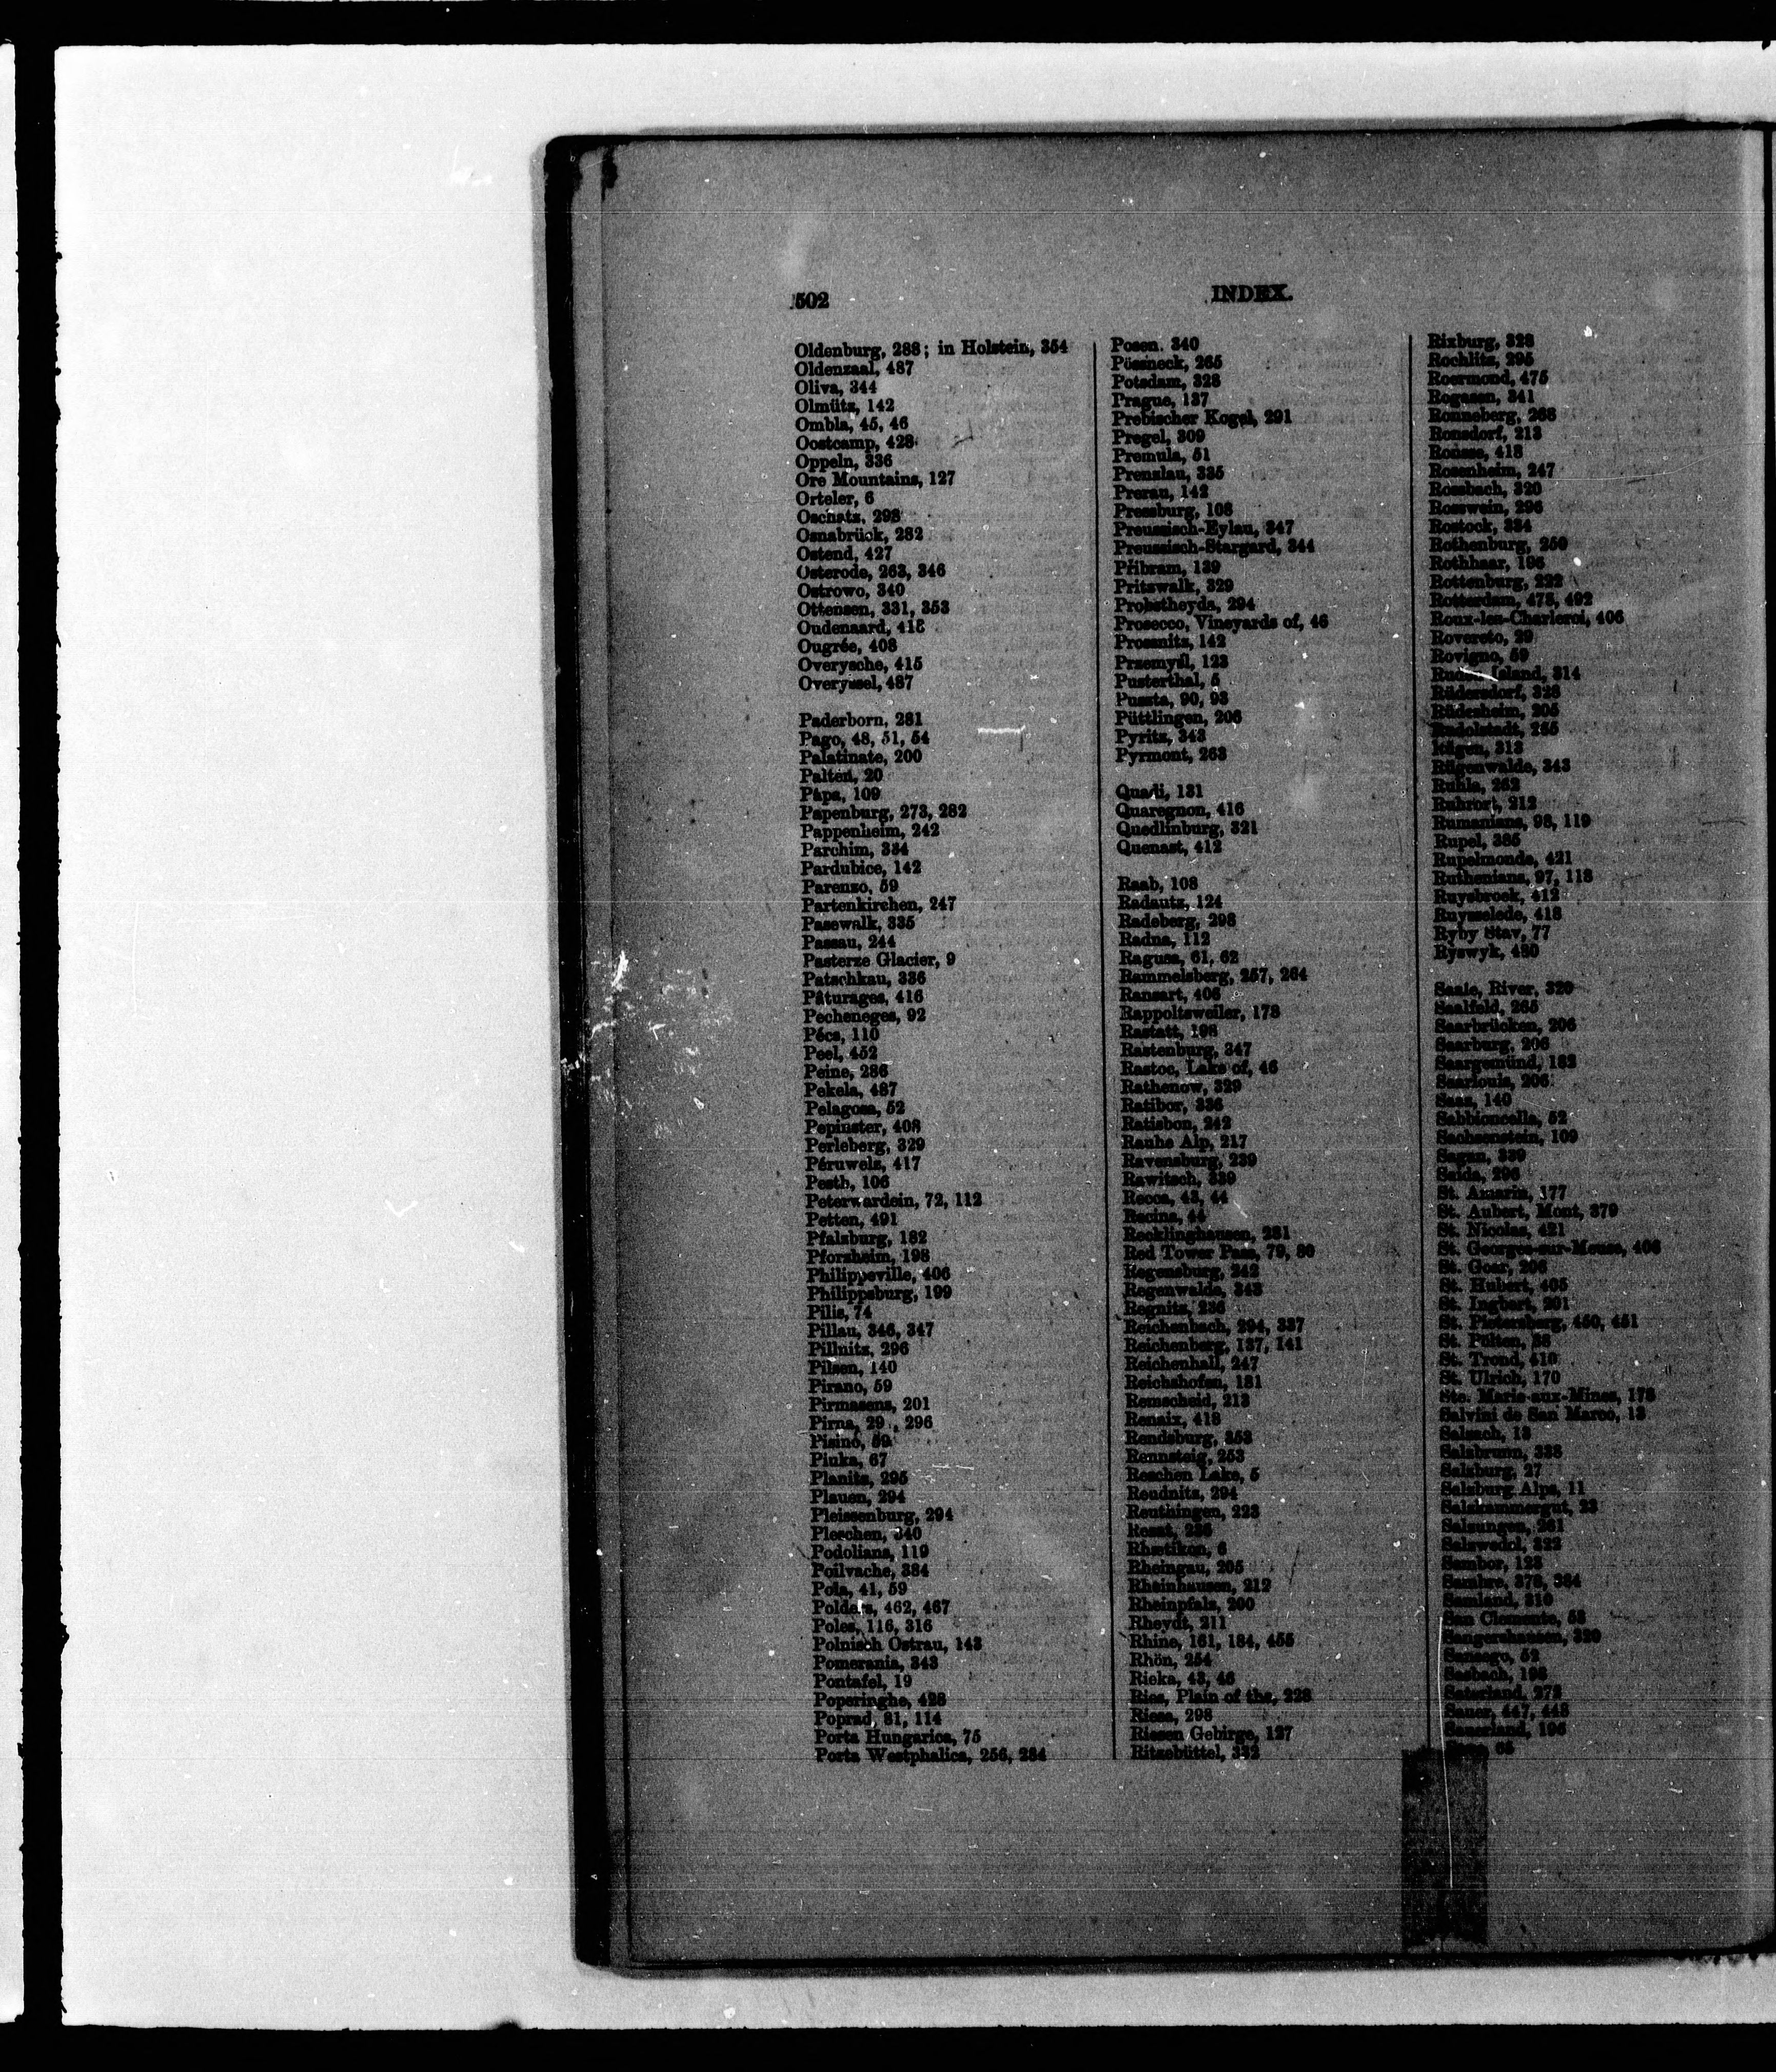 502
INDEX.
Oldenburg, 288; in Holstein, 354
Oldenzaal, 487
Oliva, 344
Olmütz, 142
Ombla, 45, 46
Oostcamp, 428
Oppeln, 336
Ore Mountains, 127
Orteler, 6
Oschatz, 298
Osnabrück, 282
Ostend, 427
Osterode, 263, 346
Ostrowo, 340
Ottensen, 331, 353
Oudenaard, 418
Ougrée, 408
Overysche, 415
Overyssel, 487
Paderborn, 281
Pago, 48, 51, 54
Palatinate, 200
Palten, 20
Pápa, 109
Papenburg, 273, 282
Pappenheim, 242
Parchim, 334
Pardubice, 142
Parenzo, 59
Partenkirchen, 247
Pasewalk, 335
Passau, 244
Pasterze Glacier, 9
Patschkau, 336
Pâturages, 416
Pecheneges, 92
Pécs, 110
Peel, 452
Peine, 286
Pekela, 487
Pelagosa, 52
Pepinster, 408
Perleberg, 329
Péruwelz, 417
Pesth, 106
Peterwardein, 72, 112
Petten, 491
Pfalzburg, 182
Pforzheim, 198
Philippeville, 406
Philippsburg, 199
Pilis, 74
Pillau, 346, 347
Pillnitz, 296
Pilsen, 140
Pirano, 59
Pirmasens, 201
Pirna, 29 , 296
Pisino, 59
Piuka, 67
Planitz, 295
Plauen, 294
Pleissenburg, 294
Pleschen, 340
Podolians, 119
Poilvache, 384
Pola, 41, 59
Polders, 462, 467
Poles, 116, 316
Polnisch Ostrau, 143
Pomerania, 343
Pontafel, 19
Poperinghe, 428
Poprad, 81, 114
Porta Hungarica, 75
Porta Westphalica, 256, 284
Posen. 340
Pössneck, 265
Potsdam, 328
Prague, 137
Prebischer Kogel, 291
Pregel, 309
Premula, 51
Prenzlau, 335
Prerau, 142
Pressburg, 108
Preussisch-Eylau, 347
Preussisch-Stargard, 344
Přibram, 139
Pritzwalk, 329
Probstheyda, 294
Prosecco, Vineyards of, 46
Prossnitz, 142
Przemyśl, 123
Pusterthal, 5
Puszta, 90, 93
Püttlingen, 206
Pyritz, 343
Pyrmont, 263
Quadi, 131
Quaregnon, 416
Quedlinburg, 321
Quenast, 412
Raab, 108
Radautz, 124
Radeberg, 298
Radna, 112
Ragusa, 61, 62
Rammelsberg, 257, 264
Ransart, 406
Rappoltsweiler, 178
Rastatt, 198
Rastenburg, 347
Rastoc, Lake of, 46
Rathenow, 329
Ratibor, 336
Ratisbon, 242
Rauhe Alp, 217
Ravensburg, 239
Rawitsch, 339
Recca, 43, 44
Recina, 44
Recklinghausen, 281
Red Tower Pass, 79, 80
Regensburg, 242
Regenwalde, 343
Regnitz, 236
Reichenbach, 294, 337
Reichenberg, 137, 141
Reichenhall, 247
Reichshofen, 181
Remscheid, 213
Renaix, 418
Rendsburg, 353
Rennsteig, 253
Reschen Lake, 5
Reudnitz, 294
Reuthingen, 223
Rezat, 236
Rhætikon, 6
Rheingau, 205
Rheinhausen, 212
Rheinpfalz, 200
Rheydt, 211
Rhine, 161, 184, 455
Rhön, 254
Rieka, 43, 46
Ries, Plain of the, 228
Riesa, 298
Riesen Gebirge, 127
Ritzebüttel, 332
Rixburg, 328
Rochlitz, 295
Roermond, 475
Rogasen, 341
Ronneberg, 268
Ronsdorf, 213
Ronsse, 418
Rosenheim, 247
Rossbach, 320
Rosswein, 296
Rostock, 334
Rothenburg, 250
Rothhaar, 196
Rottenburg, 222
Rotterdam, 478, 492
Roux-les-Charleroi, 406
Rovereto, 29
Rovigno, 59
314
Rüdersdorf, 328
Rüdesheim, 205
Rudolstadt, 265
Rügen, 313
Rügenwalde, 343
Ruhla, 262
Ruhrort, 212
Rumanians, 98, 119
Rupel, 385
Rupelmonde, 421
Ruthenians, 97, 118
Ruysbroek, 412
Ruysselede, 418
Ryby Stav, 77
Ryswyk, 480
Saale, River, 320
Saalfeld, 265
Saarbrücken, 206
Saarburg, 206
Saargemünd, 183
Saarlouis, 206
Saaz, 140
Sabbioncella, 52
Sachsenstein, 109
Sagan, 339
Saida, 296
St. Amarin, 177
St. Aubert, Mont, 379
St. Nicolas, 421
St. Georges-sur-Meuse, 408
St. Goar, 206
St. Hubert, 405
St. Ingbert, 201
St. Pietersberg, 450, 451
St. Pölten, 38
St. Trond, 410
St. Ulrich, 170
Ste. Marie-aux-Mines, 178
Salvini de San Marco, 13
Salzach, 13
Salzbrunn, 338
Salzburg, 27
Salzburg Alps, 11
Salzkammergut, 23
Salzungen, 261
Salzwedel, 322
Sambor, 123
Sambre, 378, 384
Samland, 310
San Clemente, 53
Sangershausen, 320
Sansego, 52
Sasbach, 198
Saterland, 272
Sauer, 447, 448
Sauerland, 195